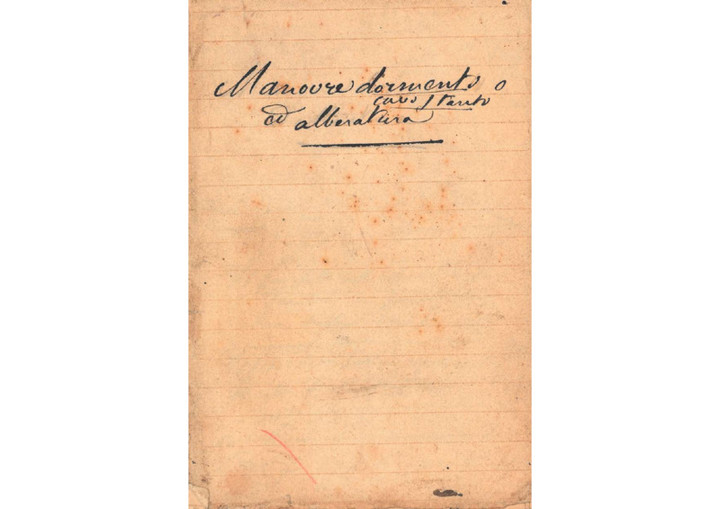 Manovre dormenti o
cavo stanto
ed alberatura